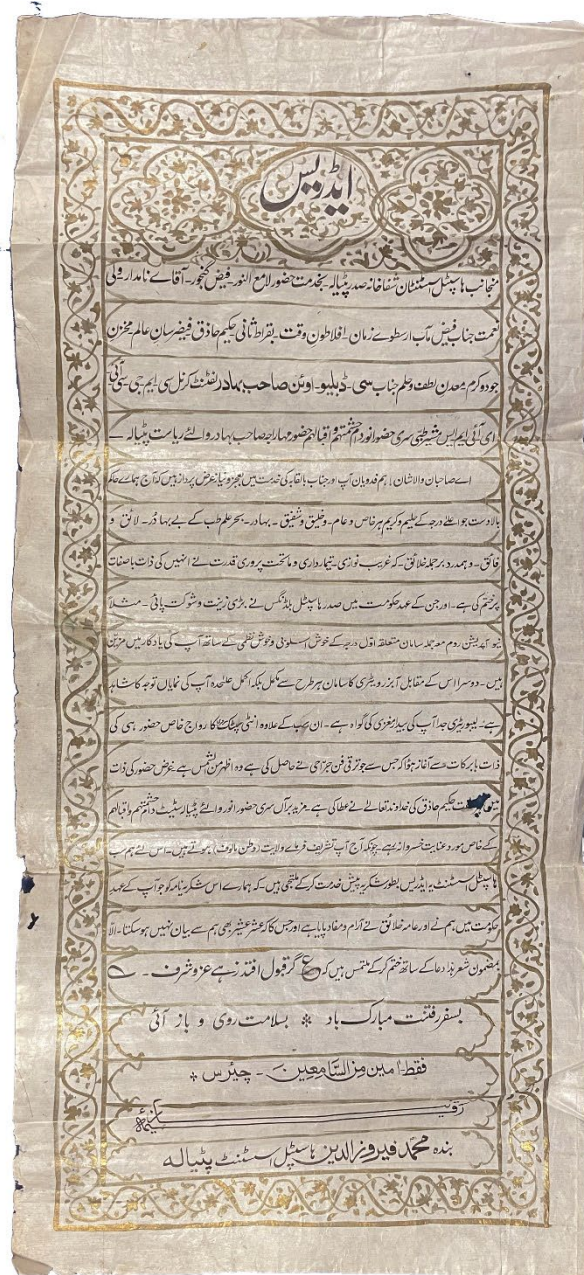 ایڈریس
منجانب ہاسپٹل اسسٹنٹان شفاخانہ صدر پٹیالہ۔ بخدمت حضور لامع النور۔ فیض گنجور۔ آقائے نامدار ولی
نعمت جناب فیض مآب ارسطوئے زمان۔ افلاطون وقت۔ بقراط ثانی حکیم حاذق فیضرسان عالم مخزن
جود و کرم معدن لطف و حلم جناب سی۔ ڈبلیو۔ اوئن صاحب بہادر لفٹنٹ کرنل سی ایم جی سی آئی
ای آئی ایم ایس مشیر طبی سری حضور انور دام حشمتہم و اقبالہم حضور مہاراجہ صاحب بہادر والئے ریاست پٹیالہ۔
اے صاحبان والاشان! ہم فدویان آپ اور جناب بالقابہ کی خدمت میں بعجز و نیاز عرض پرداز ہیں کہ آج ہمارے حاکم
بالادست جو اعلےٰ درجہ کے حلیم و کریم ہر خاص و عام۔ و خلیق و شفیق۔ بہادر۔ بحر علم طب کے بے بہا دُر۔ لائق و
فائق۔ و ہمدرد ہر جملہ خلائق۔ کہ غریب نوازی۔ تیمارداری و ماتحت پروری قدرت نے انہیں کی ذات باصفات
پر ختم کی ہے۔ اور جن کے عہد حکومت میں صدر ہاسپٹل بلڈنگس نے بڑی زینت و شوکت پائی۔ مثلاً
نیو آپریشن روم معہ جملہ سامان متعلقہ اوّل درجہ کے خوش اسلوبی و خوش نظمی کے ساتھ آپ کی یادگار میں مزین
ہیں۔ دوسرا اس کے مقابل آبزرویٹری کا سامان ہر طرح سے مکمل بلکہ اکمل علیٰحدہ آپ کی نمایاں توجہ کا شاہد
ہے۔ لیبوریٹری جدا آپ کی بیدار مغزی کی گواہ ہے۔ ان سب کے علاوہ انٹی سپٹک کا رواج خاص حضور ہی کی
ذات بابرکات سے آغاز ہوا کہ جس سے جو ترقی فن جراحی نے حاصل کی ہے وہ اظہر من الشمس ہے غرض حضور کی ذات
حکیم حاذق کی خداوند تعالےٰ نے عطا کی ہے۔ مزید برآں سری حضور انور والئے پٹیالہ سٹیٹ دام حشمتہم و اقبالہم
کے خاص مورد عنایت خسروانہ ہے۔ چونکہ آج آپ تشریف فرمائے ولایت (وطن مالوف) ہوتے ہیں۔ اس لئے ہم سب
ہاسپٹل اسسٹنٹ یہ ایڈریس بطور شکریہ پیش خدمت کر کے ملتجی ہیں۔ کہ ہمارے اس شکریہ نامہ کو جو آپ کے عہد
حکومت میں ہم نے اور عامہ خلائق نے آرام و مفاد پایا ہے اور جس کا کہ عشر عشیر بھی ہم سے بیان نہیں ہو سکتا۔ الّا
بمضمون شعر ہذا دعا کے ساتھ ختم کر کے ملتمس ہیں کہ ع گر قبول افتد زہے عز و شرف۔
بسفر رفتنت مبارک باد ٭ بسلامت روی و باز آئی
فقط۔ آمین من السامعین۔ چیئرس ٭
بندہ محمد فیروز الدین ہاسپٹل اسسٹنٹ پٹیالہ